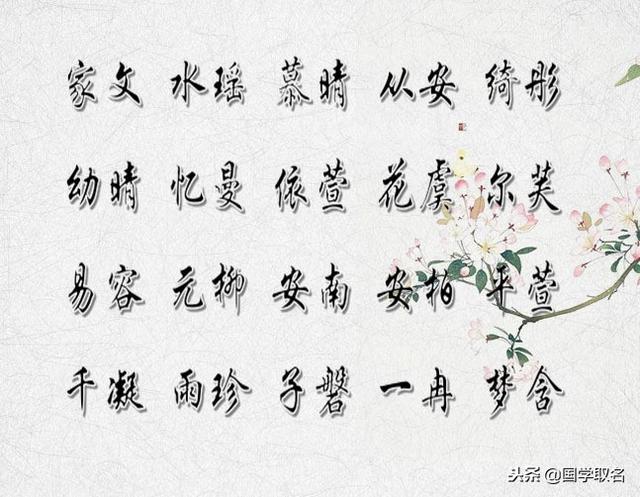 家文 水瑶 慕晴 从安 绮彤
幼晴 忆曼 依萱 花虞 尔芙
易容 元柳 安南 安柏 平萱
千凝 雨珍 子磐 一冉 梦含
头条 @国学取名